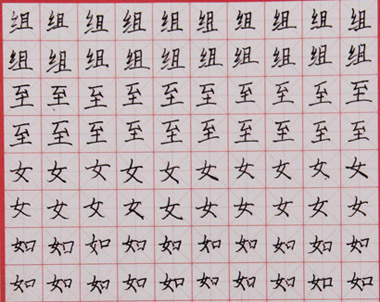 组组组组组组组组组组
组组组组组组组组组组
至至至至至至至至至至
至至至至至至至至至至
女女女女女女女女女女
女女女女女女女女女女
如如如如如如如如如如
如如如如如如如如如如